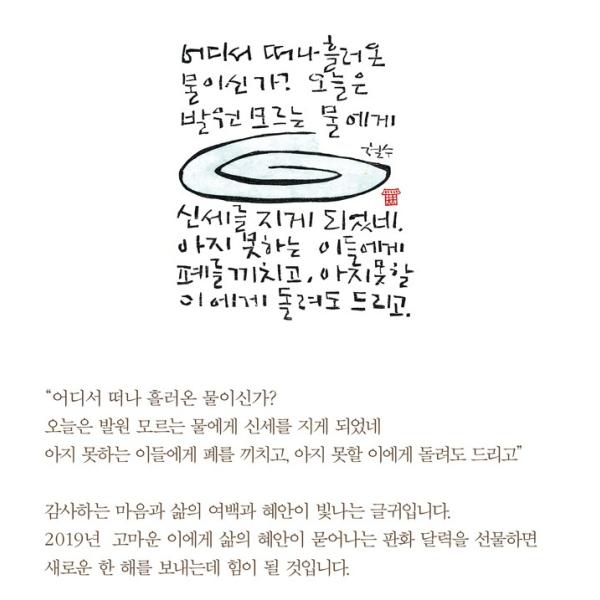 어디서 떠나 흘러온
물이신가? 오늘은
발원 모르는 물에게
신세를 지게 되었네.
아지 못하는 이들에게
폐를 끼치고, 아지 못할
이에게 돌려도 드리고.
“어디서 떠나 흘러온 물이신가?
오늘은 발원 모르는 물에게 신세를 지게 되었네
아지 못하는 이들에게 폐를 끼치고, 아지 못할 이에게 돌려도 드리고”
감사하는 마음과 삶의 여백과 혜안이 빛나는 글귀입니다.
2019년 고마운 이에게 삶의 혜안이 묻어나는 판화 달력을 선물하면
새로운 한 해를 보내는데 힘이 될 것입니다.